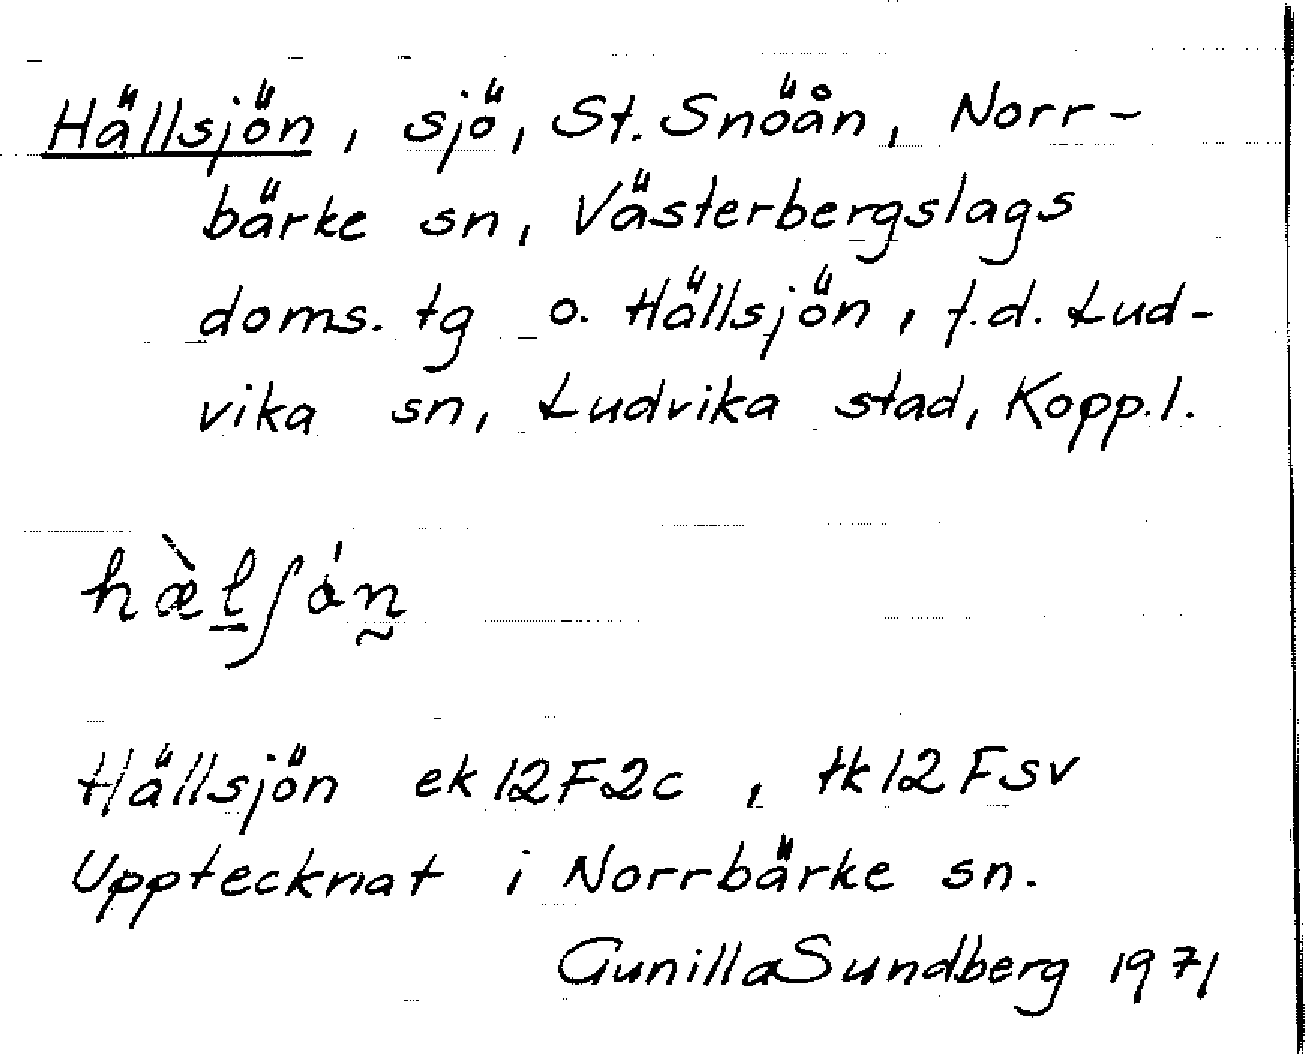 Hällsjön, sjö, St. Snöån, Norr-
bärke sn, Västerbergslags
doms. tg o. Hällsjön, f.d. Lud-
vika sn, Ludvika stad, Kopp.l.
Hällsjön ek 12F2c, tk 12 F sv
Upptecknat i Norrbärke sn.
Gunilla Sundberg 1971